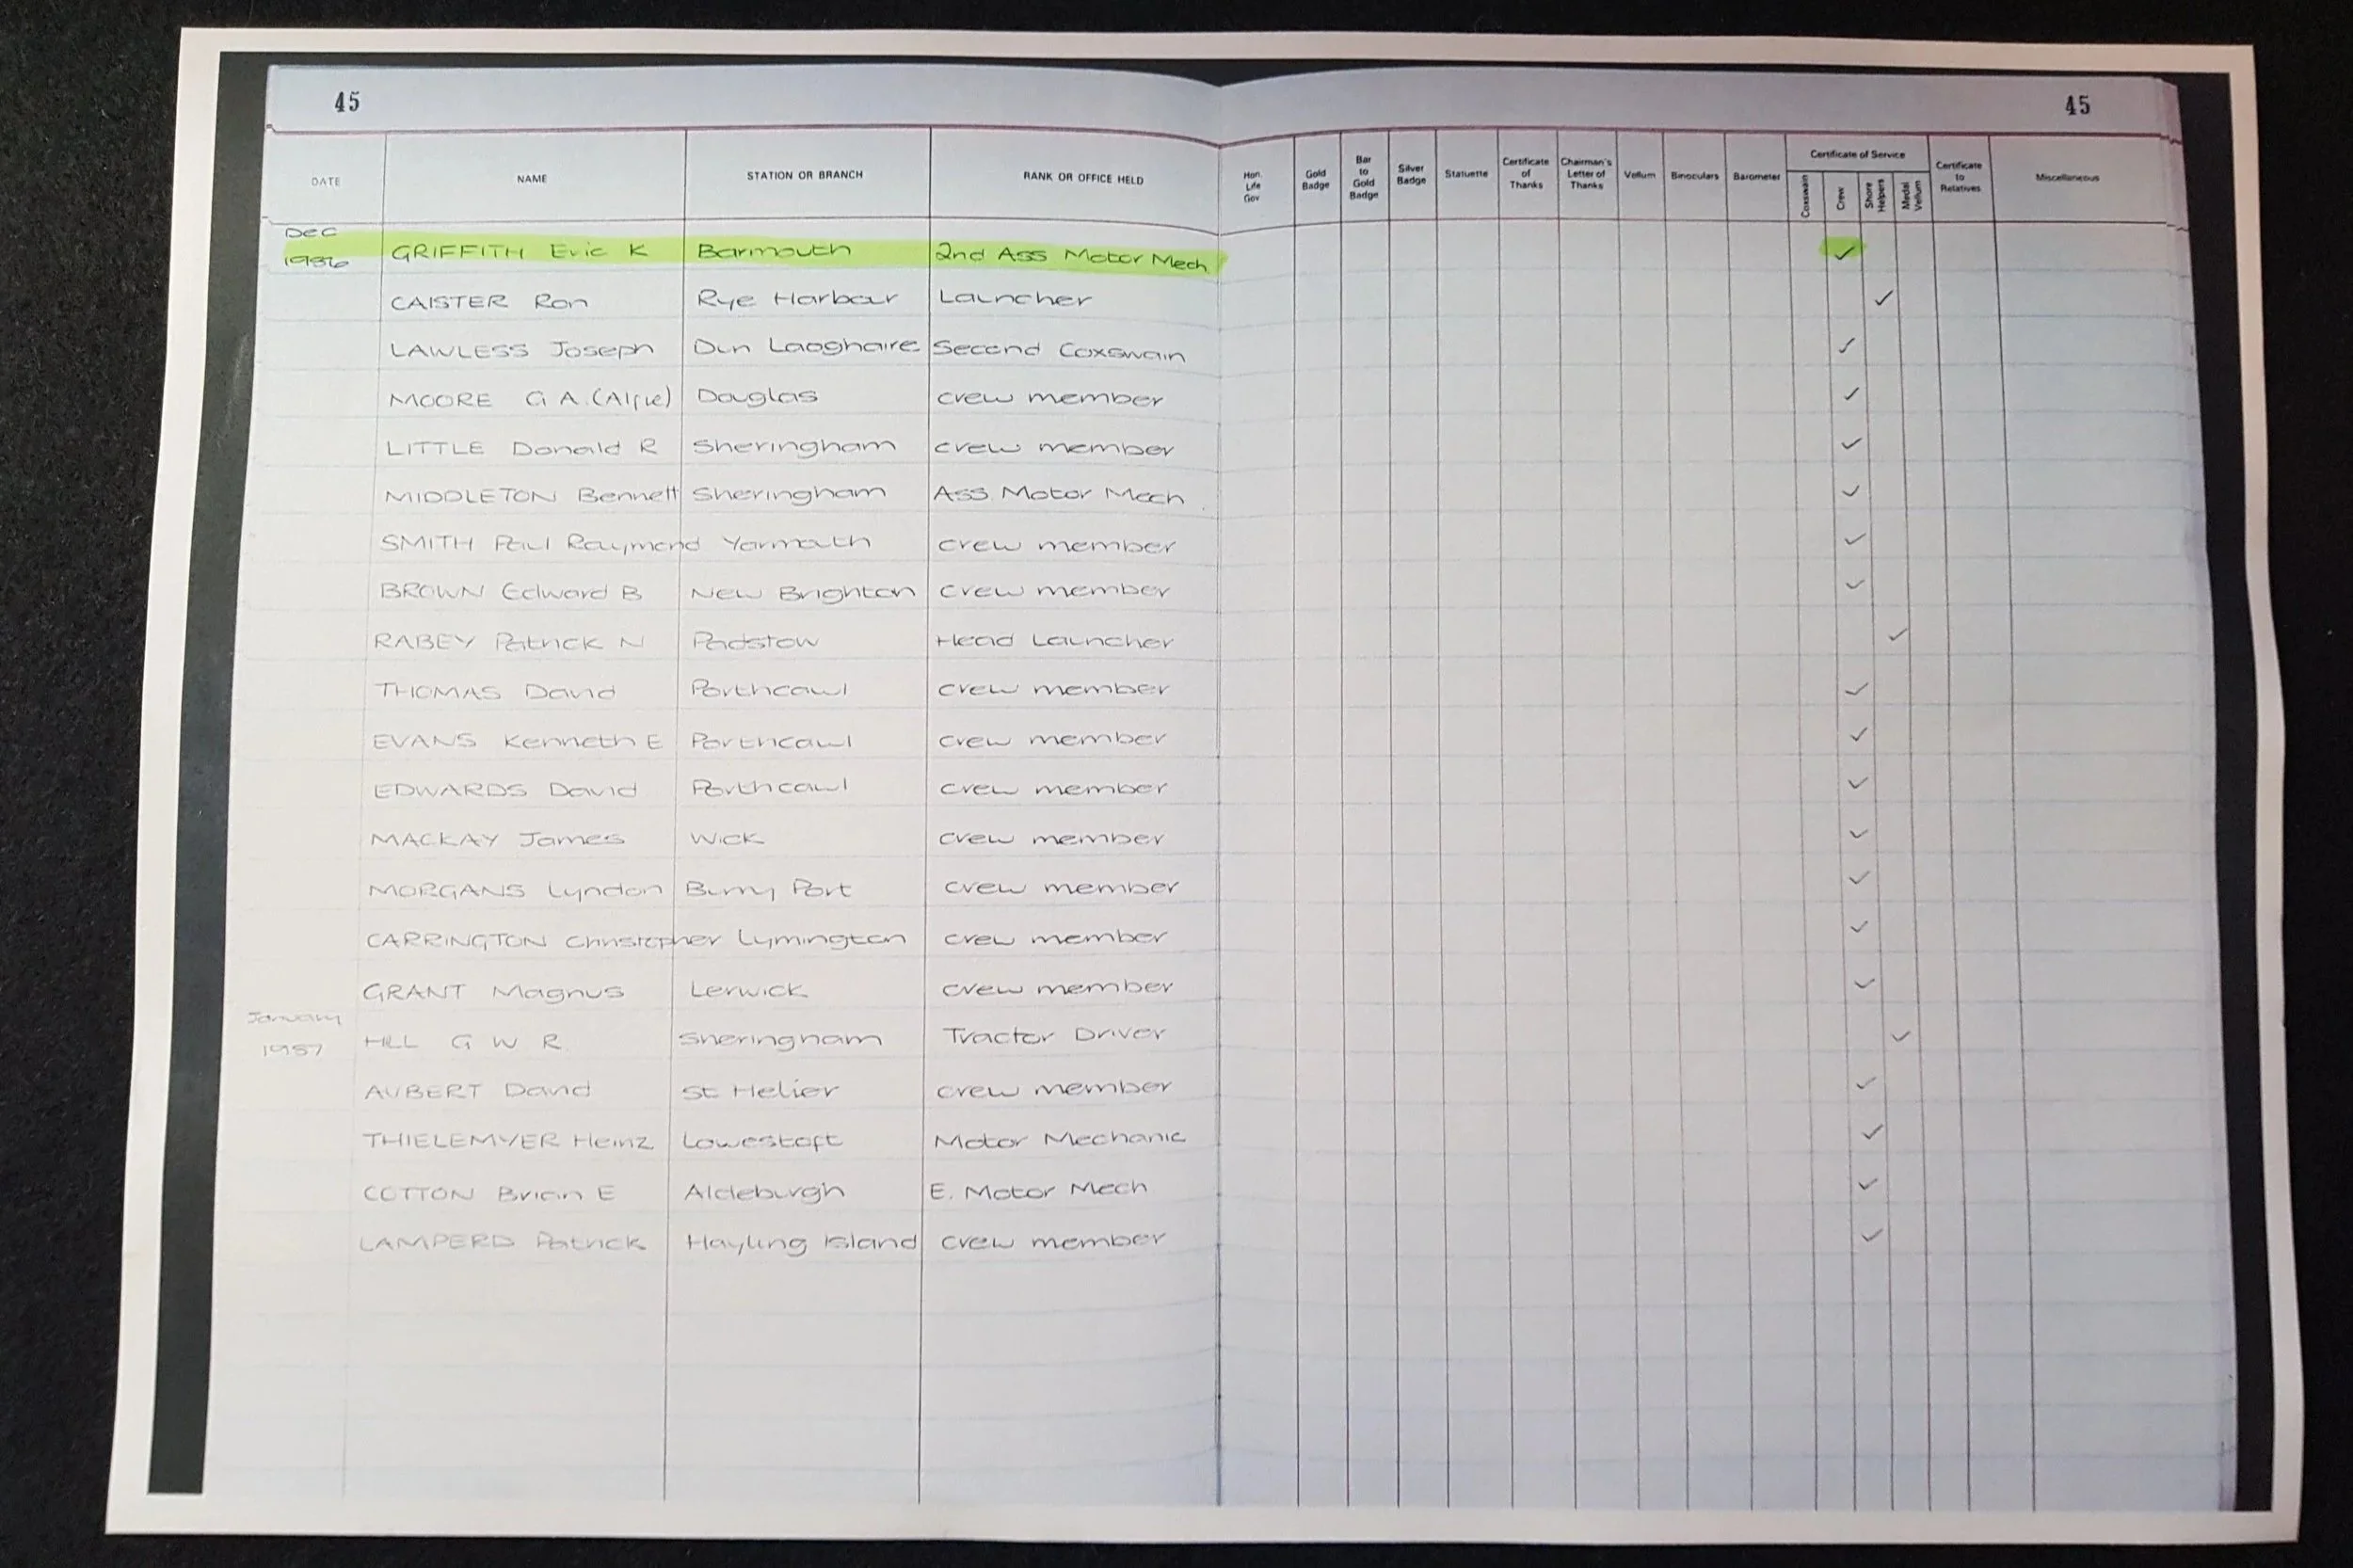 45 45
DATE NAME STATION OR BRANCH RANK OR OFFICE HELD Hon. Life Gov Gold Badge Bar to Gold Badge Silver Badge Statuette Certificate of Thanks Chairman's Letter of Thanks Vellum Binoculars Barometer Certificate of Service Coxswain Crew Shore Helpers Medal Vellum Certificate to Relatives Miscellaneous
Dec
1986 GRIFFITH Eric K Barmouth 2nd Ass Motor Mech ✓
CAISTER Ron Rye Harbour Launcher ✓
LAWLESS Joseph Dun Laoghaire Second Coxswain ✓
MOORE G A. (Alfie) Douglas crew member ✓
LITTLE Donald R Sheringham crew member ✓
MIDDLETON Bennett Sheringham Ass. Motor Mech ✓
SMITH Paul Raymond Yarmouth crew member ✓
BROWN Edward B New Brighton crew member ✓
RABEY Patrick N Padstow Head Launcher ✓ ✓
THOMAS David Porthcawl crew member ✓
EVANS Kenneth E Porthcawl crew member ✓
EDWARDS David Porthcawl crew member ✓
MACKAY James Wick crew member ✓
MORGANS Lyndon Burry Port crew member ✓
CARRINGTON Christopher Lymington crew member ✓
GRANT Magnus Lerwick crew member ✓
January
1987 HILL G W R Sheringham Tractor Driver ✓
AUBERT David St Helier crew member ✓
THIELEMYER Heinz Lowestoft Motor Mechanic ✓
COTTON Brian E Aldeburgh E. Motor Mech ✓
LAMPERD Patrick Hayling Island crew member ✓